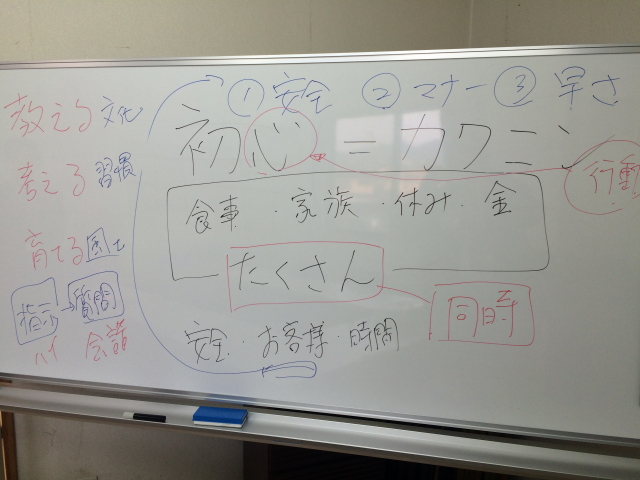 ① 安全 ② マナー ③ 早さ
教える 文化
初心 = カクニン
考える 習慣
行動
食事・家族・休み・金
育てる 風土
たくさん
指示→質問
同時
ハイ 会話
安全・お客様・時間